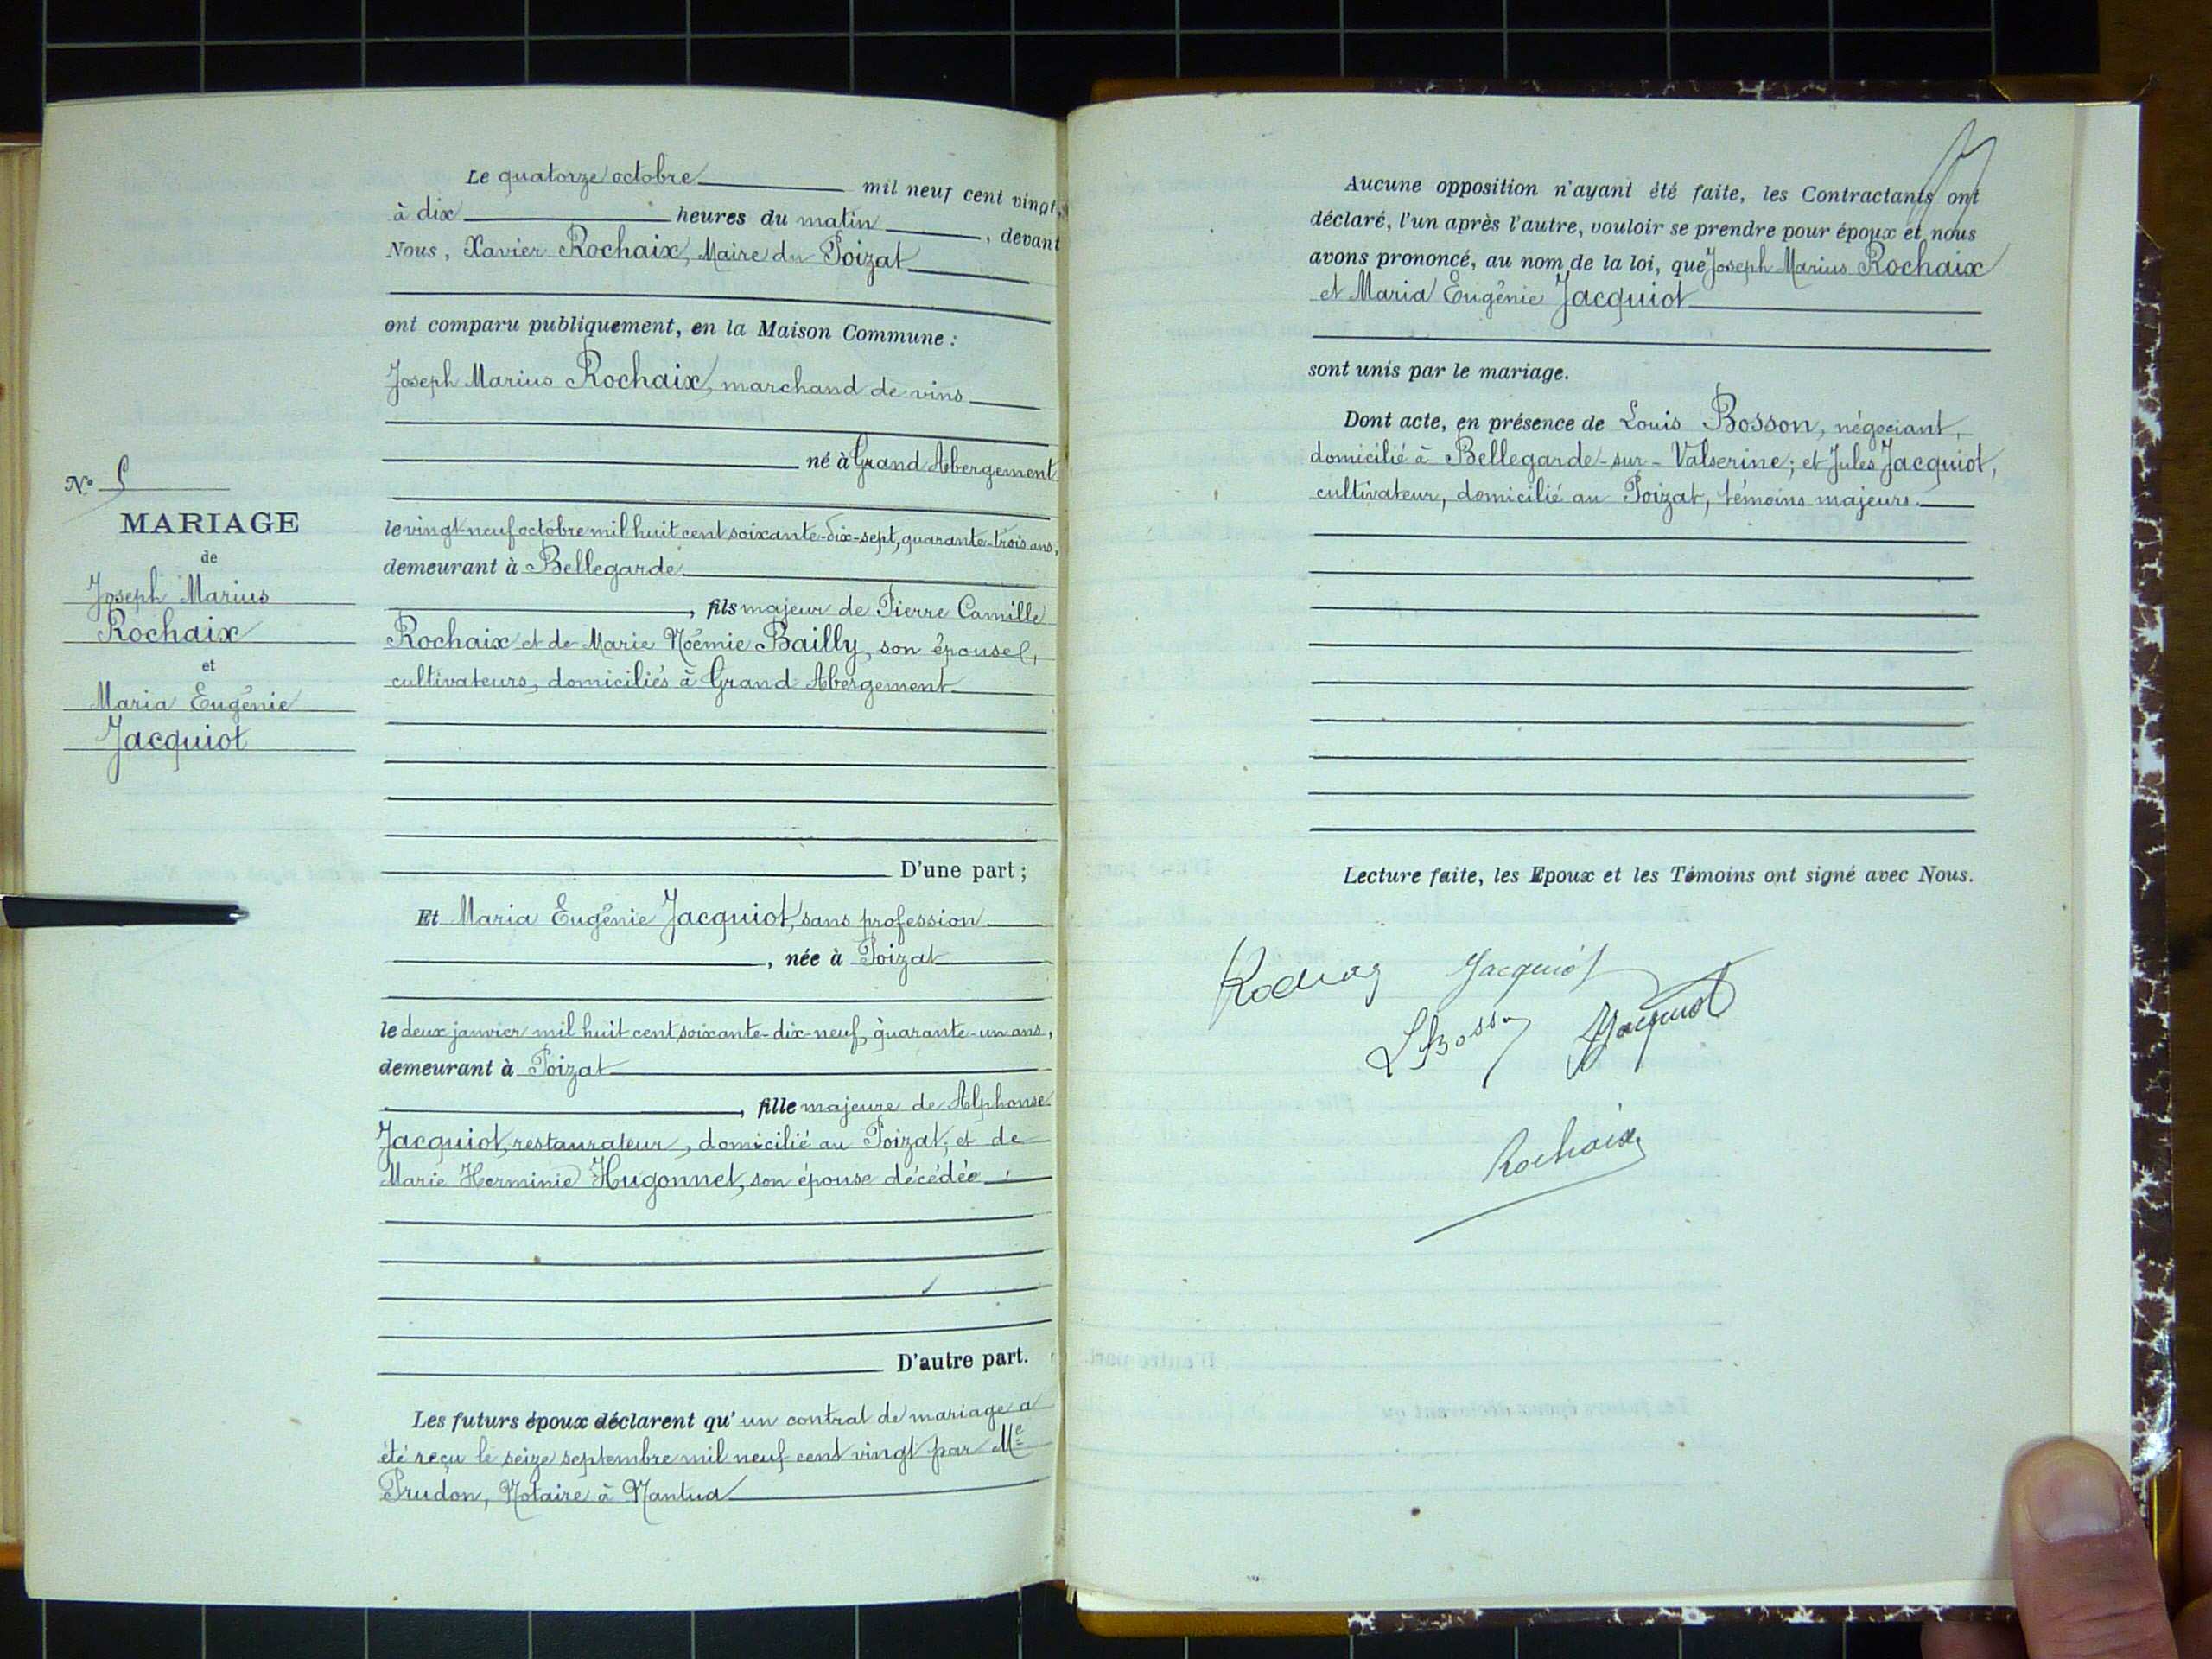 Le quatorze octobre mil neuf cent vingt,
à dix heures du matin, devant
Nous, Xavier Rochaix, Maire du Poizat
ont comparu publiquement, en la Maison Commune :
Joseph Marius Rochaix, marchand de vins
né à Grand Abergement
le vingt-neuf octobre mil huit cent soixante-dix-sept, quarante-trois ans,
demeurant à Bellegarde
, fils majeur de Pierre Camille
Rochaix et de Marie Noémie Bailly, son épouse,
cultivateurs, domiciliés à Grand Abergement
D'une part ;
Et Maria Eugénie Jacquiot, sans profession
, née à Poizat
le deux janvier mil huit cent soixante-dix-neuf, quarante-un ans,
demeurant à Poizat
, fille majeure de Alphonse
Jacquiot, restaurateur, domicilié au Poizat, et de
Marie Herminie Hugonnet, son épouse décédée
D'autre part.
Les futurs époux déclarent qu'un contrat de mariage a
été reçu le seize septembre mil neuf cent vingt par Me
Prudon, Notaire à Nantua
N° 5
MARIAGE
de
Joseph Marius
Rochaix
et
Maria Eugénie
Jacquiot
Aucune opposition n'ayant été faite, les Contractants ont
déclaré, l'un après l'autre, vouloir se prendre pour époux et nous
avons prononcé, au nom de la loi, que Joseph Marius Rochaix
et Maria Eugénie Jacquiot
sont unis par le mariage.
Dont acte, en présence de Louis Bosson, négociant,
domicilié à Bellegarde-sur-Valserine; et Jules Jacquiot,
cultivateur, domicilié au Poizat, témoins majeurs.
Lecture faite, les Epoux et les Témoins ont signé avec Nous.
Jacquiot
L Bosson Jacquiot
Rochaix